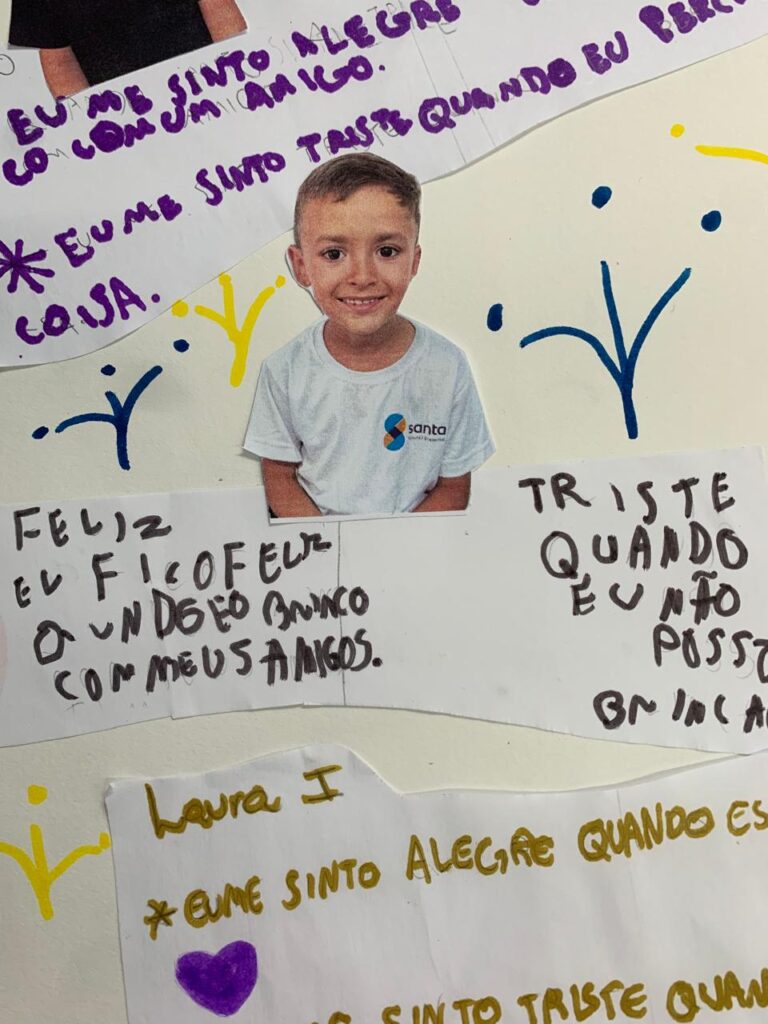 EU ME SINTO ALEGRE
CO COM UM AMIGO.
*EU ME SINTO TRISTE QUANDO EU PERC
COISA.
santa
FELIZ
EU FICO FELIZ
QUNDGEO BRINCO
COM MEUS AMIGOS.
TRISTE
QUANDO
EU NÃO
POSSO
BRINCA
Laura I
*EU ME SINTO ALEGRE QUANDO ES
SINTO TRISTE QUAN